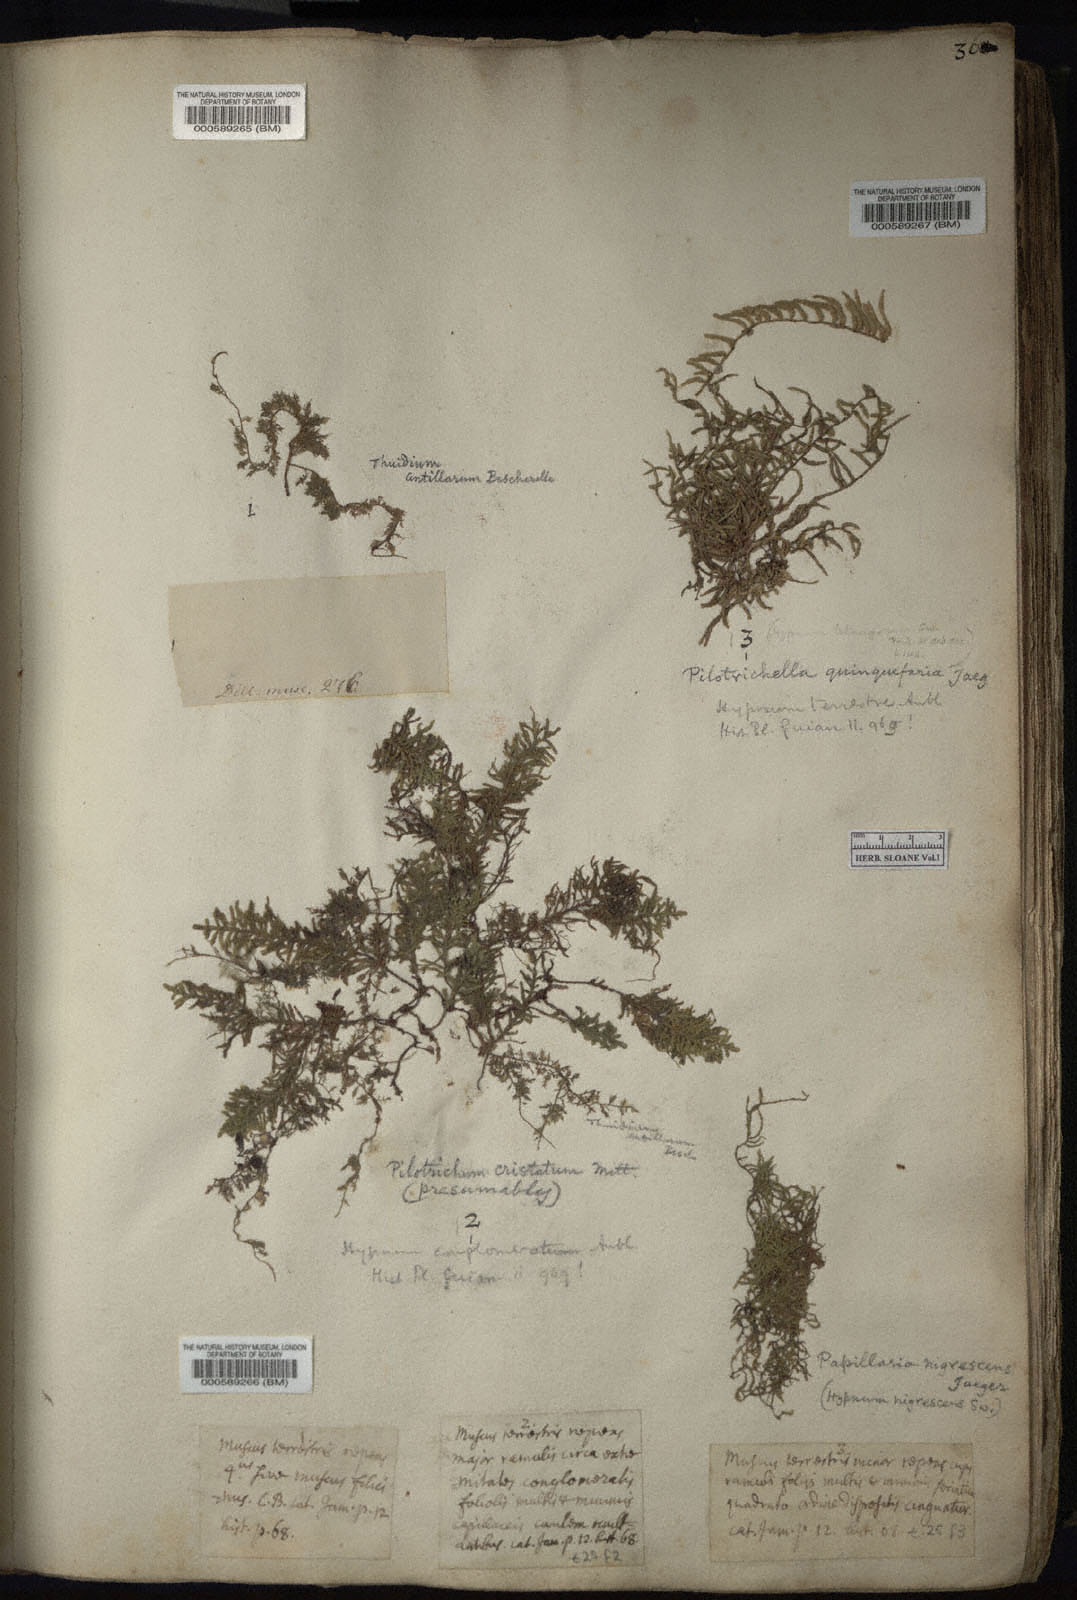 36
THE NATURAL HISTORY MUSEUM, LONDON
DEPARTMENT OF BOTANY
000589265 (BM)
THE NATURAL HISTORY MUSEUM, LONDON
DEPARTMENT OF BOTANY
000589267 (BM)
Thuidium
antillarum Bescherelle
1
Dill. musc. 246.
3 Hypnum
Pilotrichella quinquefaria Jaeg
Hypnum terrestre Aubl
Hist. Pl. Guian II. 969!
mm 1 2 3
HERB. SLOANE Vol.1
Thuidium
antillarum
Besch
Pilotrichum cristatum Mitt.
(presumably)
2
Hypnum conglomeratum Aubl
Hist Pl. Guian ii 969!
Papillaria nigrescens
Jaeger
(Hypnum nigrescens Sw.)
THE NATURAL HISTORY MUSEUM, LONDON
DEPARTMENT OF BOTANY
000589266 (BM)
1
Muscus terrestris repens
4us sive muscus filici-
nus. C.B. cat. Jam. p. 12
hist. p. 68.
2
Muscus terrestris repens
major ramulis circa extre
mitates conglomeratis
foliolis multis & minimis
capillaceis caulem
cat. Jam. p. 12. hist. 68.
t. 25. f. 2
3
Muscus terrestris minor repens cujus
ramuli foliis multis & minimis
quadrato ordine dispositis cinguntur.
cat. Jam. p. 12. hist. 68. t. 25 f 3